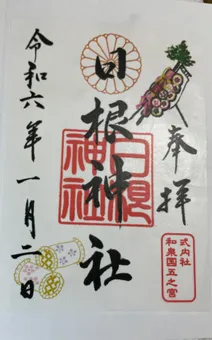 奉拝
日根神社
日根神社
式内社
和泉国五之宮
令和六年一月二日